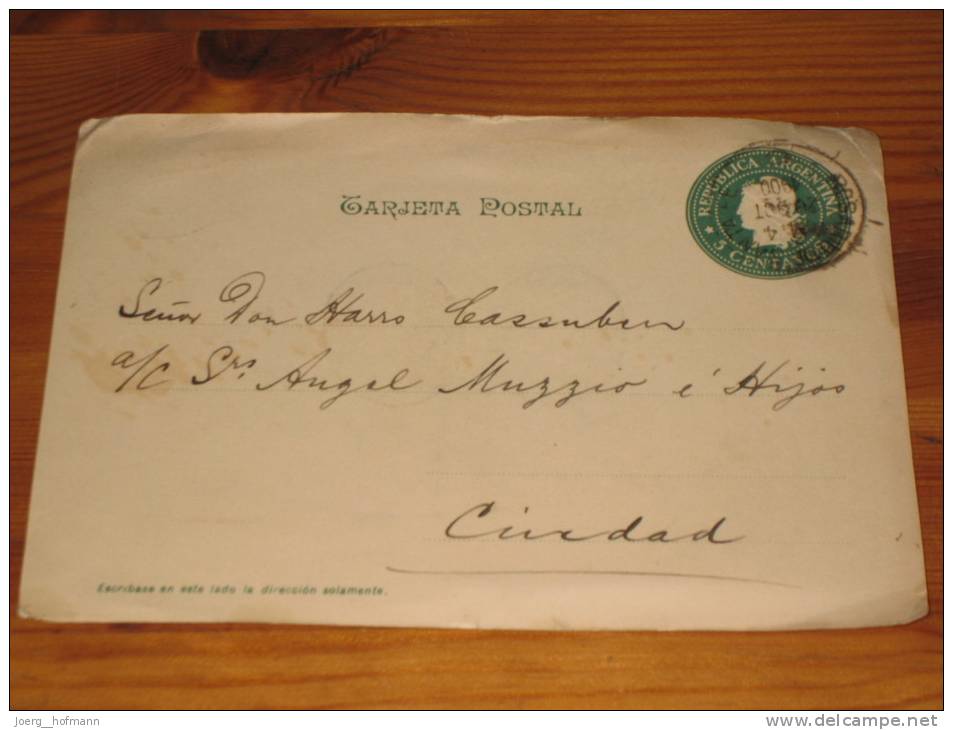 TARJETA POSTAL
REPUBLICA ARGENTINA
5 CENTAVOS
Señor Don Harro Cassuben
a/c Srs Angel Muzzio é Hijos
Ciudad
Escríbase en este lado la dirección solamente.
joerg__hofmann
www.delcampe.net